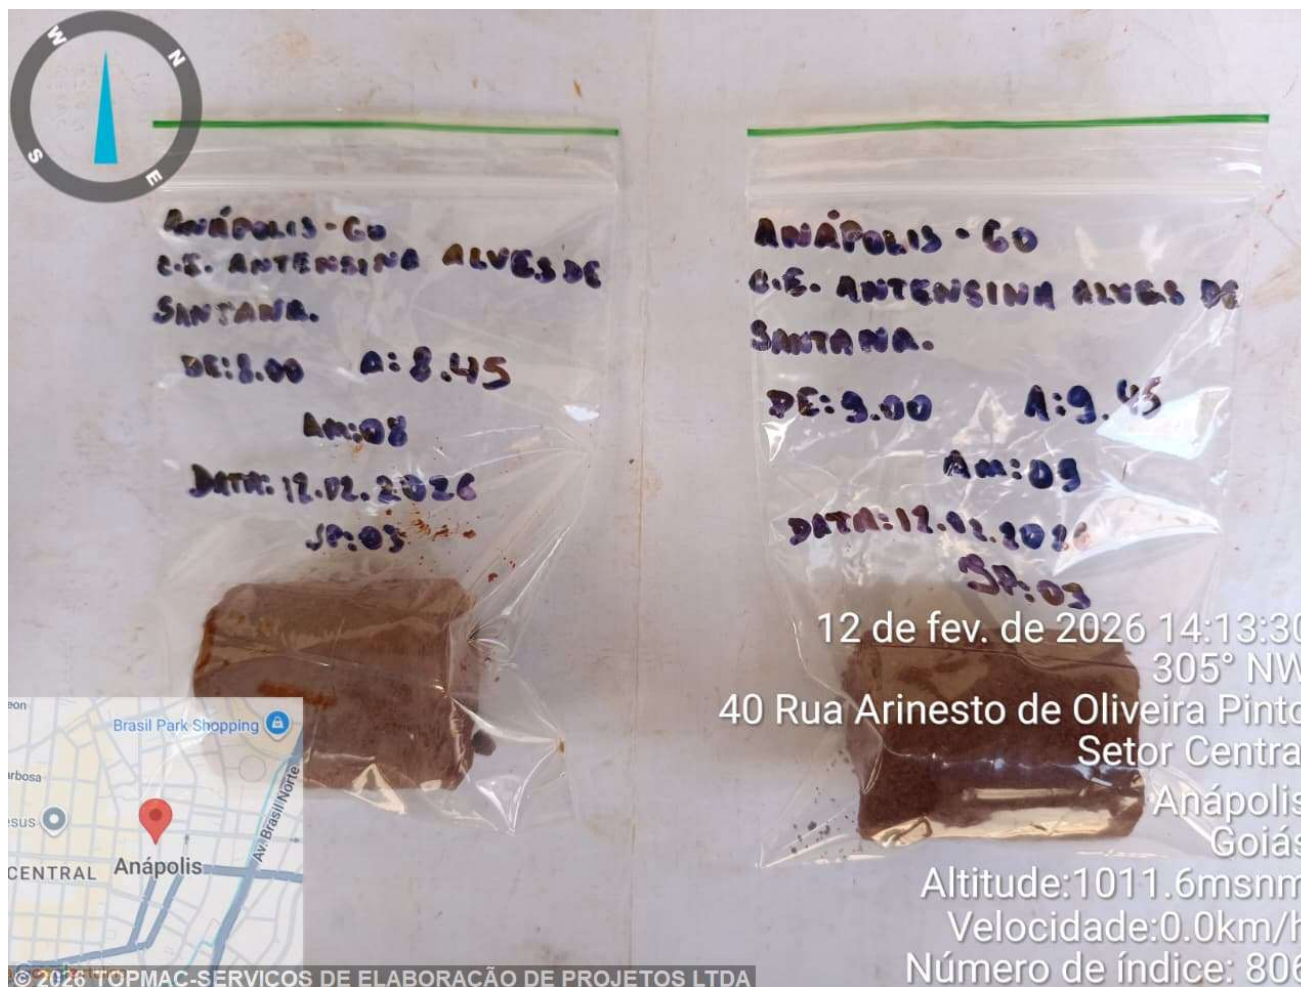 W
N
S
E
ANÁPOLIS-GO
C.E. ANTENSINA ALVES DE
SANTANA.
DE:8.00 A:8.45
AM:08
DATA:12.02.2026
SP:03
ANÁPOLIS-GO
C.E. ANTENSINA ALVES DE
SANTANA.
DE:9.00 A:9.45
AM:09
DATA:12.02.2026
SP:03
12 de fev. de 2026 14:13:30
305° NW
40 Rua Arinesto de Oliveira Pinto
Setor Central
Anápolis
Goiás
Altitude:1011.6msnm
Velocidade:0.0km/h
Número de índice: 806
Brasil Park Shopping
arbosa
esus
CENTRAL
Anápolis
Av. Brasil Norte
© 2026 TOPMAC-SERVICOS DE ELABORAÇÃO DE PROJETOS LTDA